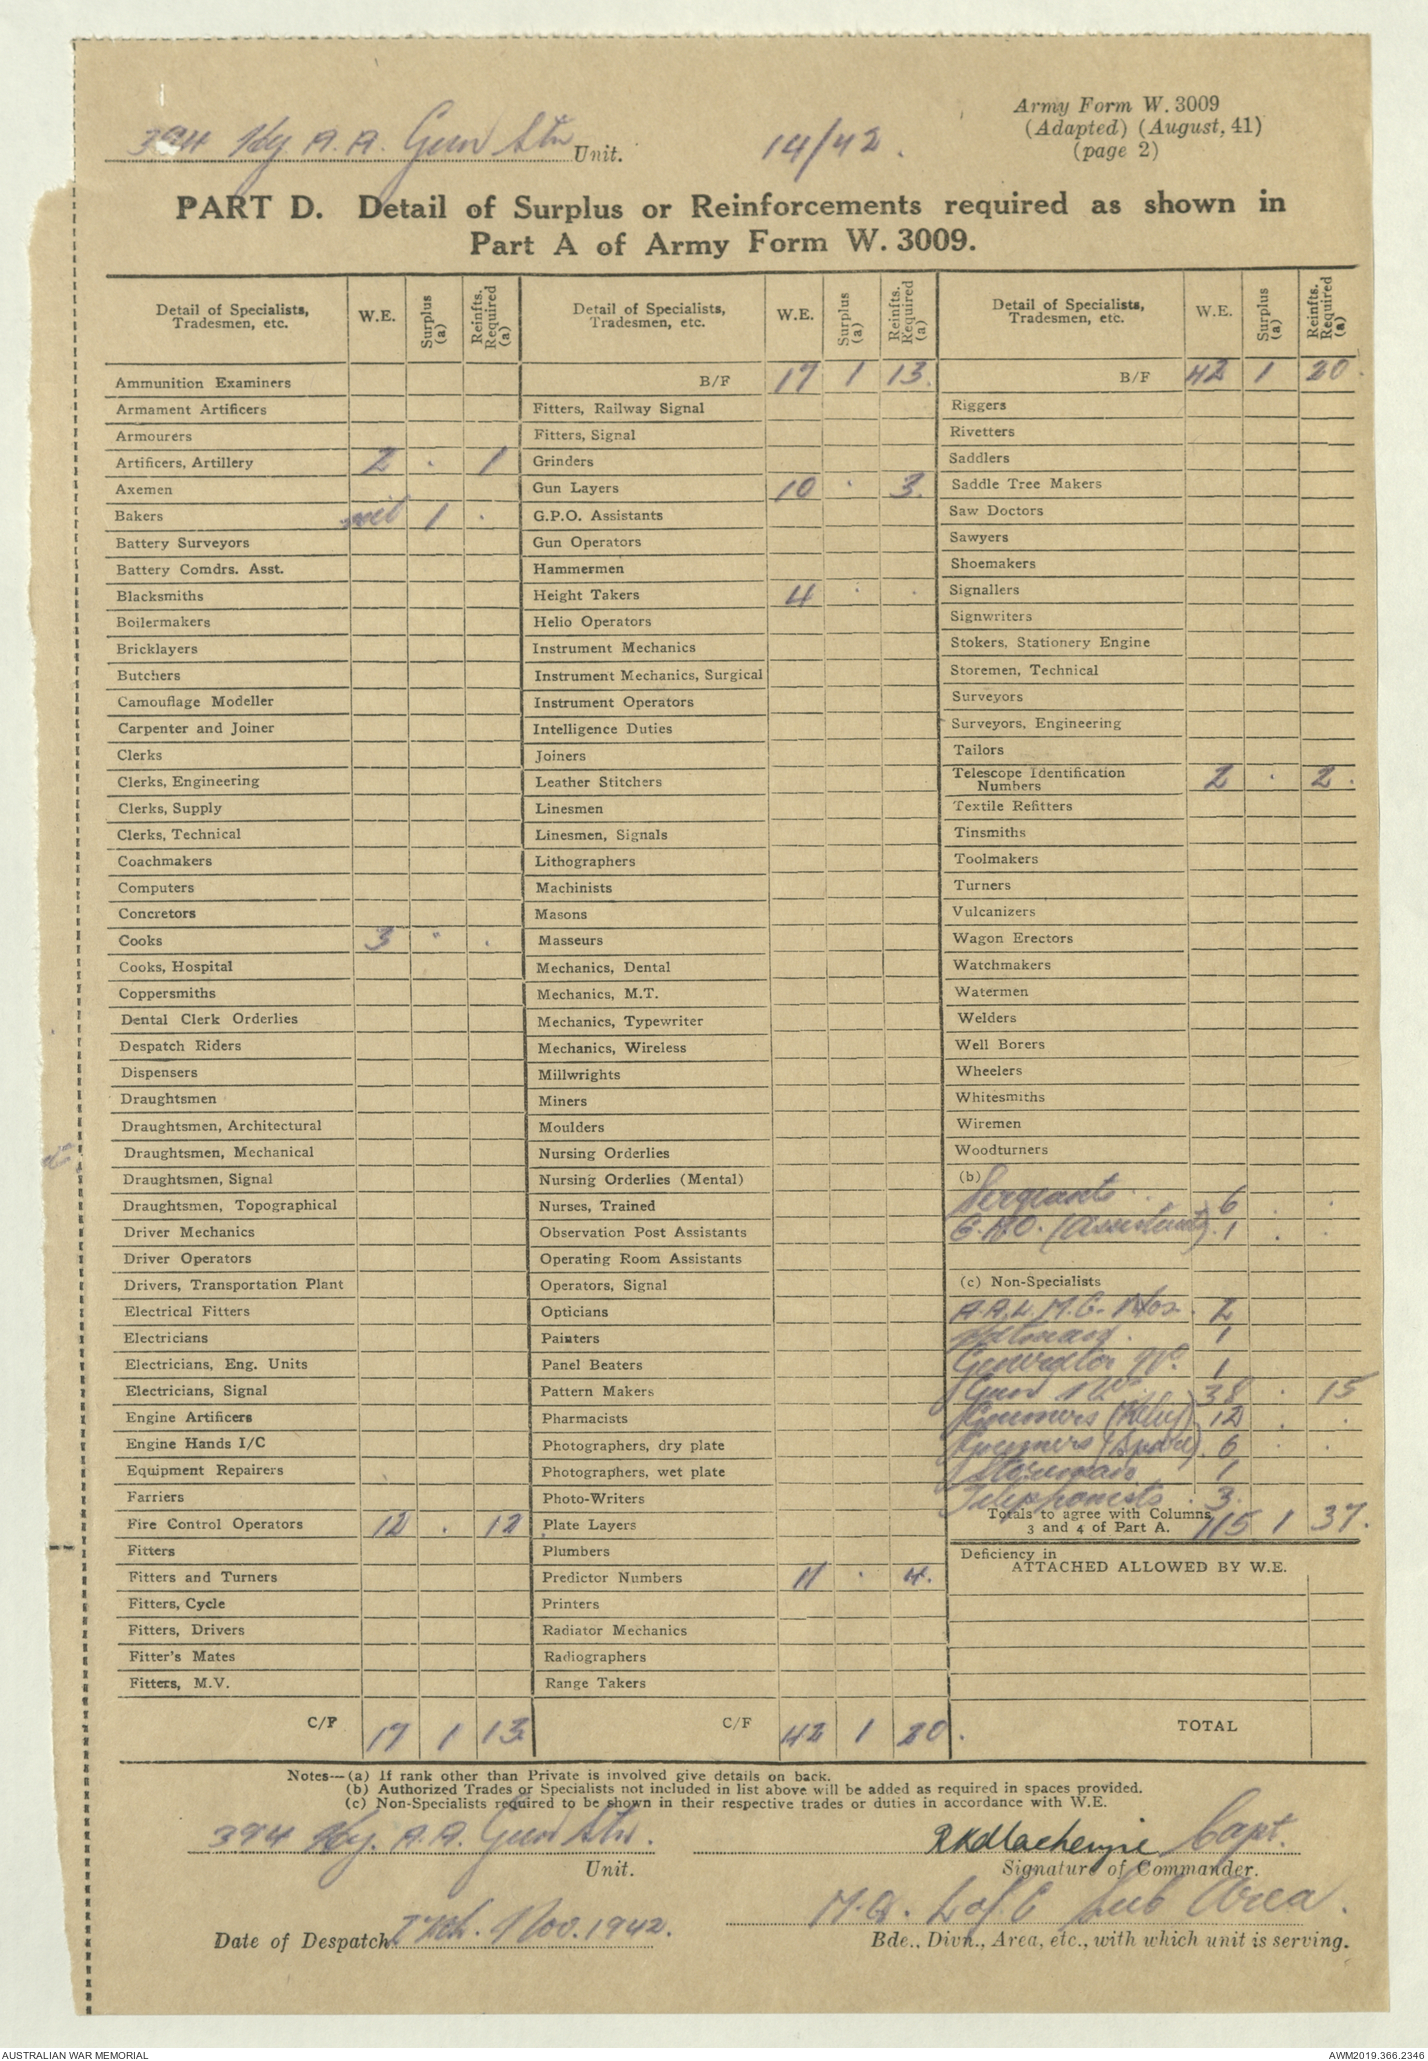 394 Hy A.A. Gun Stn Unit.
14/42.
Army Form W. 3009
(Adapted) (August, 41)
(page 2)
PART D. Detail of Surplus or Reinforcements required as shown in
Part A of Army Form W. 3009.
Detail of Specialists, Tradesmen, etc. W.E. Surplus (a) Reinfts. Required (a)
Ammunition Examiners
Armament Artificers
Armourers
Artificers, Artillery 2 . 1
Axemen
Bakers nil 1 .
Battery Surveyors
Battery Comdrs. Asst.
Blacksmiths
Boilermakers
Bricklayers
Butchers
Camouflage Modeller
Carpenter and Joiner
Clerks
Clerks, Engineering
Clerks, Supply
Clerks, Technical
Coachmakers
Computers
Concretors
Cooks 3 . .
Cooks, Hospital
Coppersmiths
Dental Clerk Orderlies
Despatch Riders
Dispensers
Draughtsmen
Draughtsmen, Architectural
Draughtsmen, Mechanical
Draughtsmen, Signal
Draughtsmen, Topographical
Driver Mechanics
Driver Operators
Drivers, Transportation Plant
Electrical Fitters
Electricians
Electricians, Eng. Units
Electricians, Signal
Engine Artificers
Engine Hands I/C
Equipment Repairers
Farriers
Fire Control Operators 12 . 12
Fitters
Fitters and Turners
Fitters, Cycle
Fitters, Drivers
Fitter's Mates
Fitters, M.V.
C/F 17 1 13
Detail of Specialists, Tradesmen, etc. W.E. Surplus (a) Reinfts. Required (a)
B/F 17 1 13.
Fitters, Railway Signal
Fitters, Signal
Grinders
Gun Layers 10 . 3.
G.P.O. Assistants
Gun Operators
Hammermen
Height Takers 4 . .
Helio Operators
Instrument Mechanics
Instrument Mechanics, Surgical
Instrument Operators
Intelligence Duties
Joiners
Leather Stitchers
Linesmen
Linesmen, Signals
Lithographers
Machinists
Masons
Masseurs
Mechanics, Dental
Mechanics, M.T.
Mechanics, Typewriter
Mechanics, Wireless
Millwrights
Miners
Moulders
Nursing Orderlies
Nursing Orderlies (Mental)
Nurses, Trained
Observation Post Assistants
Operating Room Assistants
Operators, Signal
Opticians
Painters
Panel Beaters
Pattern Makers
Pharmacists
Photographers, dry plate
Photographers, wet plate
Photo-Writers
Plate Layers
Plumbers
Predictor Numbers 11 . 4.
Printers
Radiator Mechanics
Radiographers
Range Takers
C/F 42 1 20.
Detail of Specialists, Tradesmen, etc. W.E. Surplus (a) Reinfts. Required (a)
B/F 42 1 20.
Riggers
Rivetters
Saddlers
Saddle Tree Makers
Saw Doctors
Sawyers
Shoemakers
Signallers
Signwriters
Stokers, Stationery Engine
Storemen, Technical
Surveyors
Surveyors, Engineering
Tailors
Telescope Identification Numbers 2 . 2.
Textile Refitters
Tinsmiths
Toolmakers
Turners
Vulcanizers
Wagon Erectors
Watchmakers
Watermen
Welders
Well Borers
Wheelers
Whitesmiths
Wiremen
Woodturners
(b)
Sergeants 6 . .
G.P.O. (Assistant). 1 . .
(c) Non-Specialists
A.A.L.M.G. Nos. 2
Batmans. 1
Generator No. 1
Gun Nos. 38 . 15
Gunners (Relief) 12 . .
Gunners (Spare). 6 . .
Storeman 1
Telephonists. 3.
Totals to agree with Columns 3 and 4 of Part A. 115 1 37.
Deficiency in
ATTACHED ALLOWED BY W.E.
TOTAL
Notes—(a) If rank other than Private is involved give details on back.
(b) Authorized Trades or Specialists not included in list above will be added as required in spaces provided.
(c) Non-Specialists required to be shown in their respective trades or duties in accordance with W.E.
394 Hy. A.A. Gun Stn.
Unit.
RKMackenzie Capt.
Signature of Commander.
Date of Despatch 7th. Nov. 1942.
H.Q. L of C Sub Area.
Bde., Divn., Area, etc., with which unit is serving.
AUSTRALIAN WAR MEMORIAL
AWM2019.366.2346